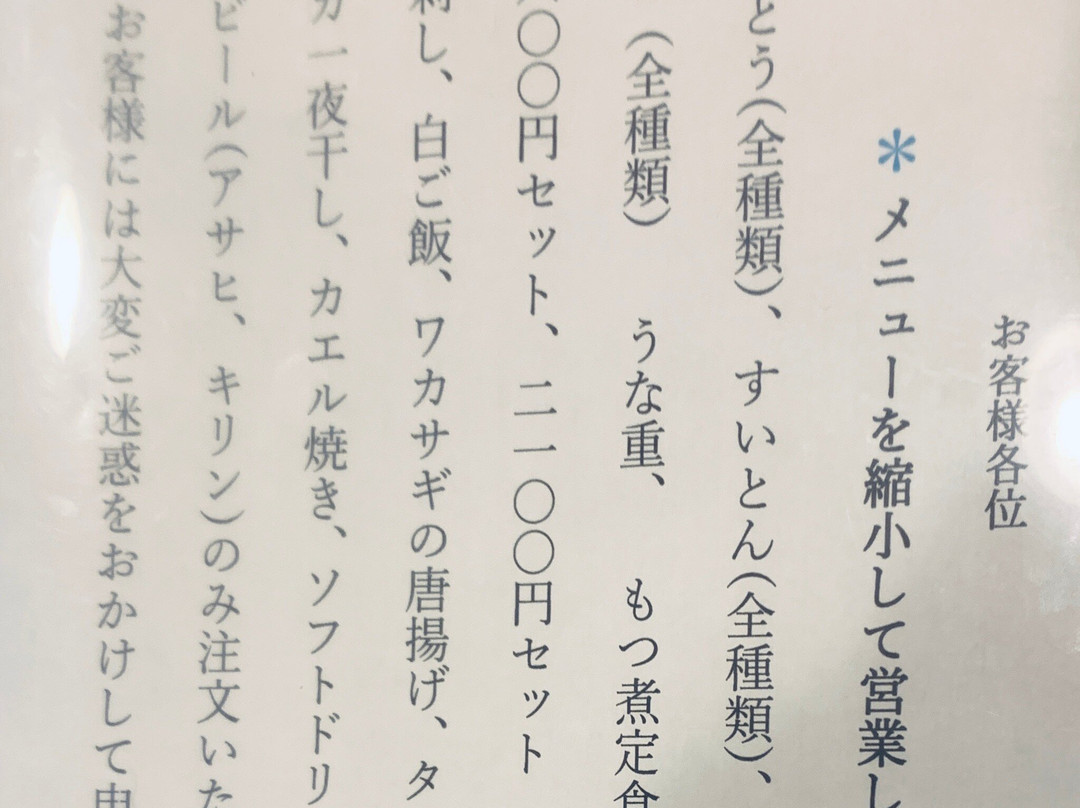 お客様各位
＊メニューを縮小して営業し
とう(全種類)、すいとん(全種類)、
(全種類)　うな重、　もつ煮定食
〇〇円セット、二一〇〇円セット
刺し、白ご飯、ワカサギの唐揚げ、タ
カ一夜干し、カエル焼き、ソフトドリ
ビール(アサヒ、キリン)のみ注文いた
お客様には大変ご迷惑をおかけして申